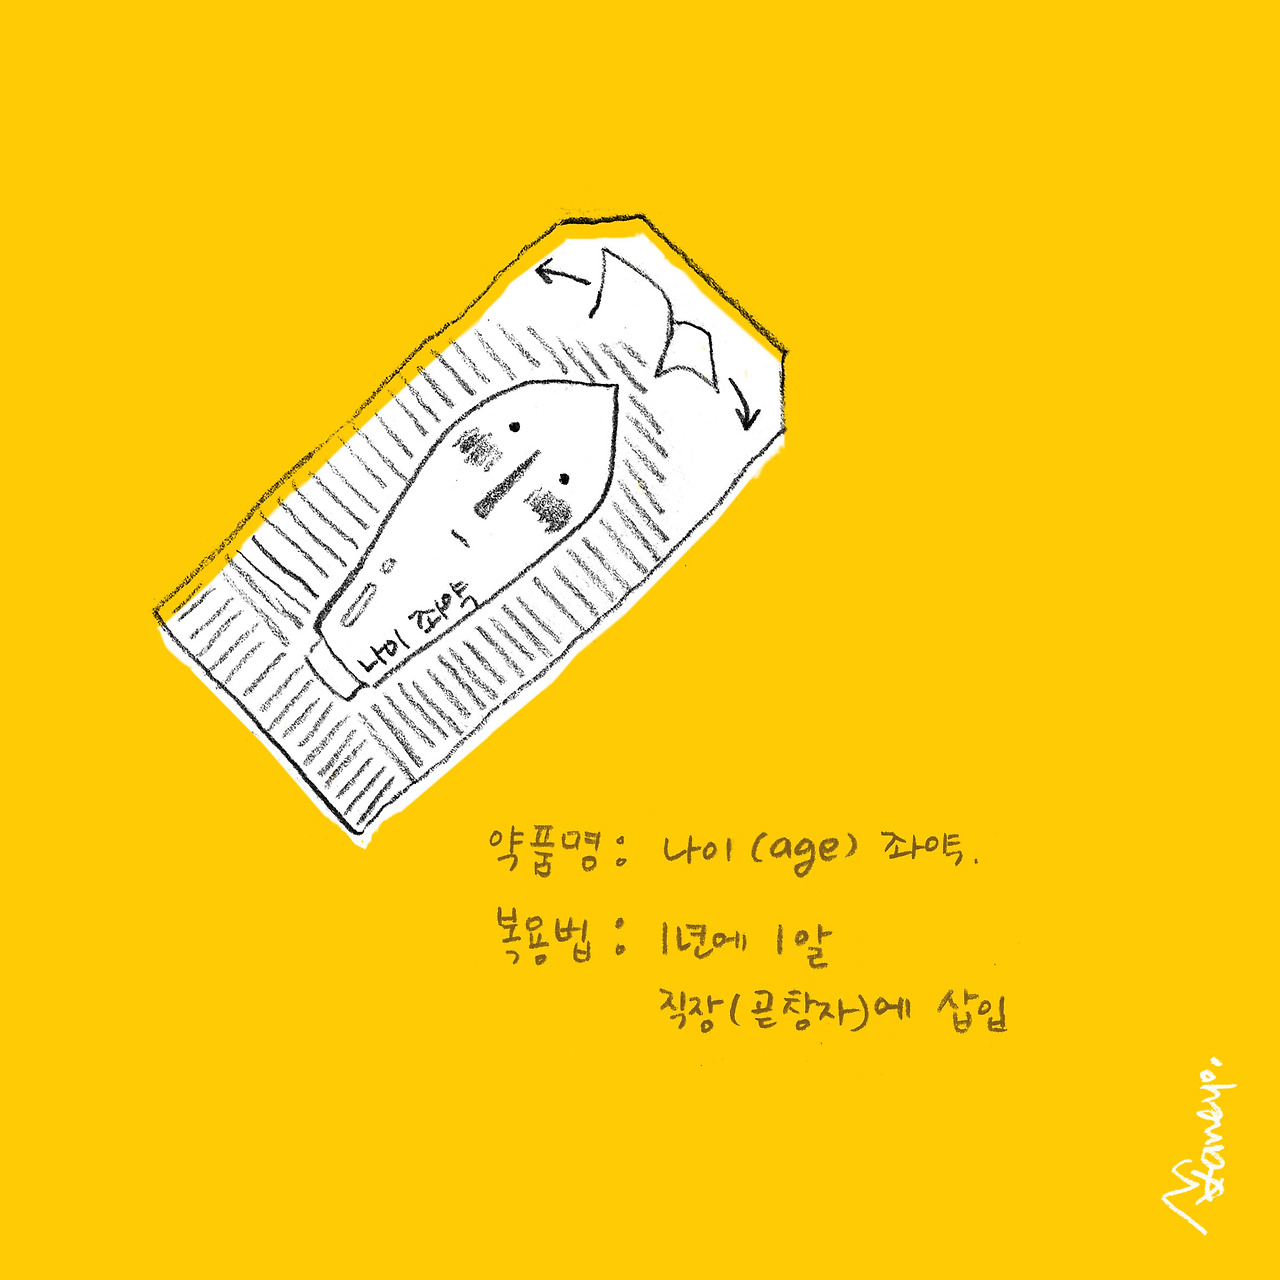 나이 좌약
약품명 : 나이 (age) 좌약.
복용법 : 1년에 1알
직장(곧창자)에 삽입